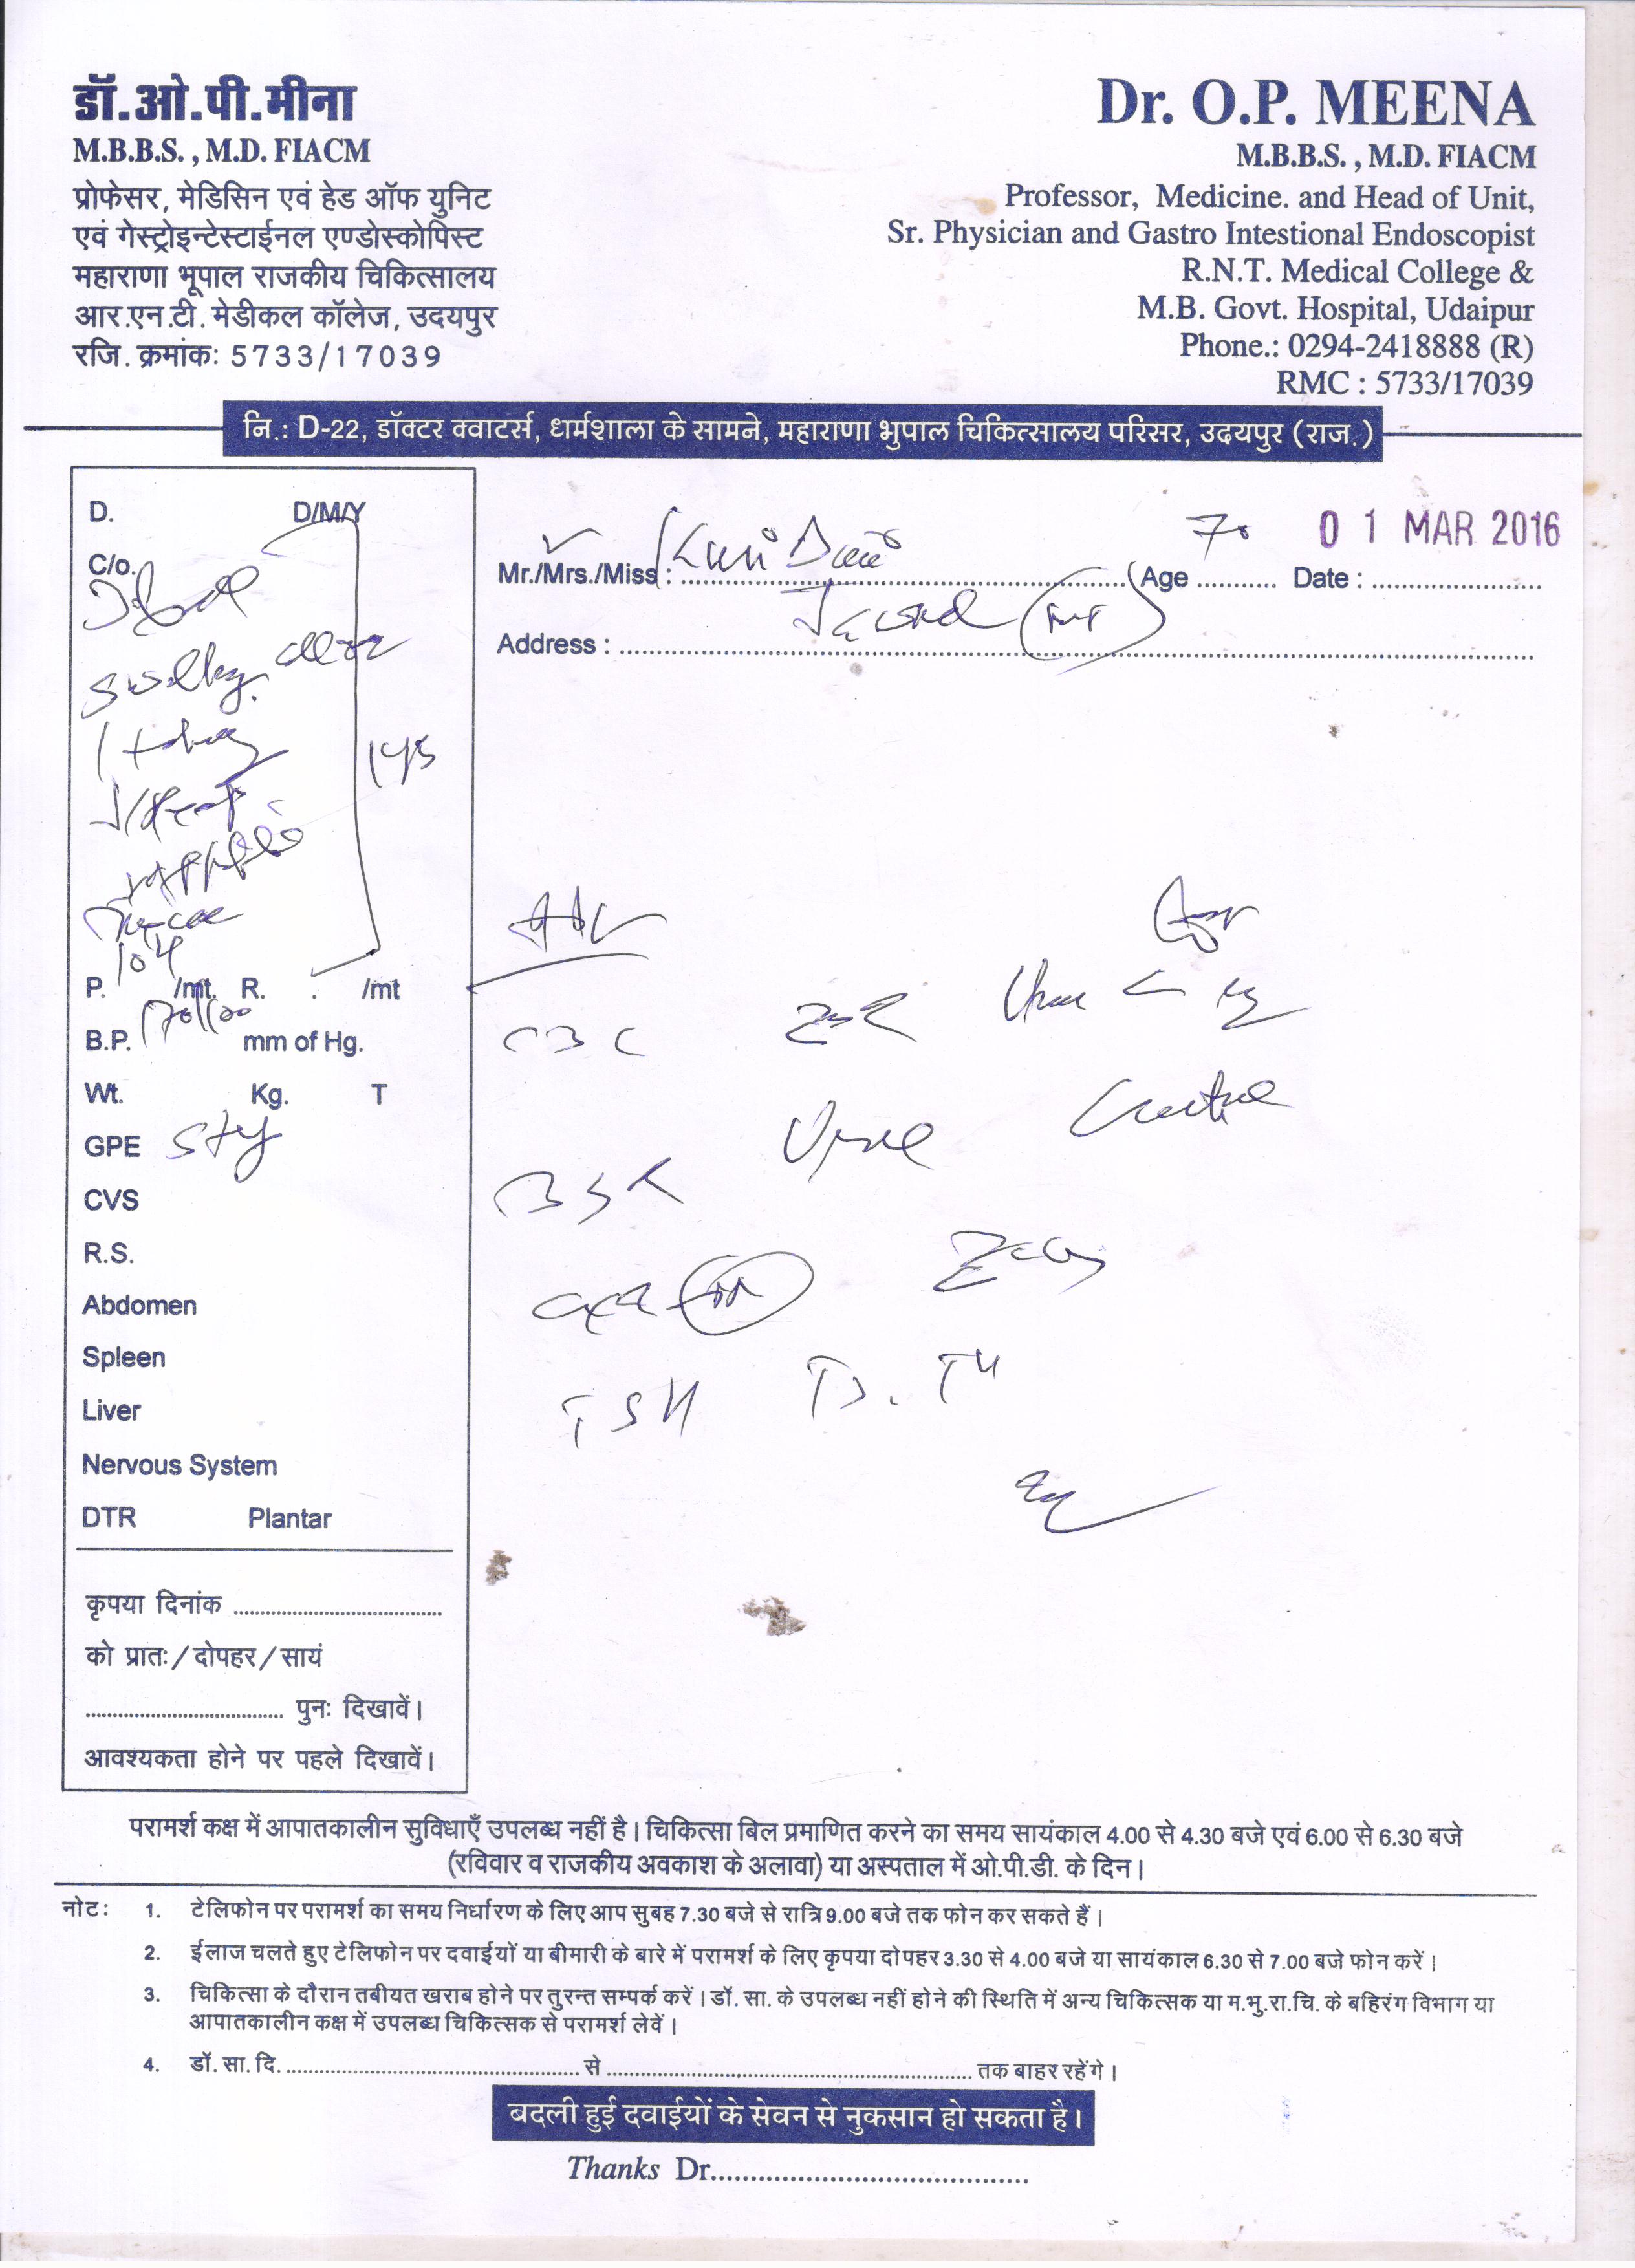 डॉ.ओ.पी.मीना
M.B.B.S. , M.D. FIACM
प्रोफेसर, मेडिसिन एवं हेड ऑफ युनिट
एवं गेस्ट्रोइन्टेस्टाईनल एण्डोस्कोपिस्ट
महाराणा भूपाल राजकीय चिकित्सालय
आर.एन.टी. मेडीकल कॉलेज, उदयपुर
रजि. क्रमांकः 5733/17039
Dr. O.P. MEENA
M.B.B.S. , M.D. FIACM
Professor, Medicine. and Head of Unit,
Sr. Physician and Gastro Intestional Endoscopist
R.N.T. Medical College &
M.B. Govt. Hospital, Udaipur
Phone.: 0294-2418888 (R)
RMC : 5733/17039
नि.: D-22, डॉक्टर क्वाटर्स, धार्मशाला के सामने, महाराणा भुपाल चिकित्सालय परिसर, उदयपुर (राज.)
D. D/M/Y
C/o.
1 yrs
104
P. /mt. R. /mt
B.P. 170/100 mm of Hg.
Wt. Kg. T
GPE
CVS
R.S.
Abdomen
Spleen
Liver
Nervous System
DTR Plantar
कृपया दिनांक
को प्रातः/दोपहर/सायं
पुनः दिखावें।
आवश्यकता होने पर पहले दिखावें।
Mr./Mrs./Miss : Age 70 Date : 01 MAR 2016
Address :
Adv
CBC ESR Urea
Urine
TSH T3. T4
परामर्श कक्ष में आपातकालीन सुविधाएँ उपलब्ध नहीं है। चिकित्सा बिल प्रमाणित करने का समय सायंकाल 4.00 से 4.30 बजे एवं 6.00 से 6.30 बजे
(रविवार व राजकीय अवकाश के अलावा) या अस्पताल में ओ.पी.डी. के दिन।
नोटः 1. टेलिफोन पर परामर्श का समय निर्धारण के लिए आप सुबह 7.30 बजे से रात्रि 9.00 बजे तक फोन कर सकते हैं।
2. ईलाज चलते हुए टेलिफोन पर दवाईयों या बीमारी के बारे में परामर्श के लिए कृपया दोपहर 3.30 से 4.00 बजे या सायंकाल 6.30 से 7.00 बजे फोन करें।
3. चिकित्सा के दौरान तबीयत खराब होने पर तुरन्त सम्पर्क करें। डॉ. सा. के उपलब्ध नहीं होने की स्थिति में अन्य चिकित्सक या म.भु.रा.चि. के बहिरंग विभाग या
आपातकालीन कक्ष में उपलब्ध चिकित्सक से परामर्श लेवें।
4. डॉ. सा. दि. से तक बाहर रहेंगे।
बदली हुई दवाईयों के सेवन से नुकसान हो सकता है।
Thanks Dr.